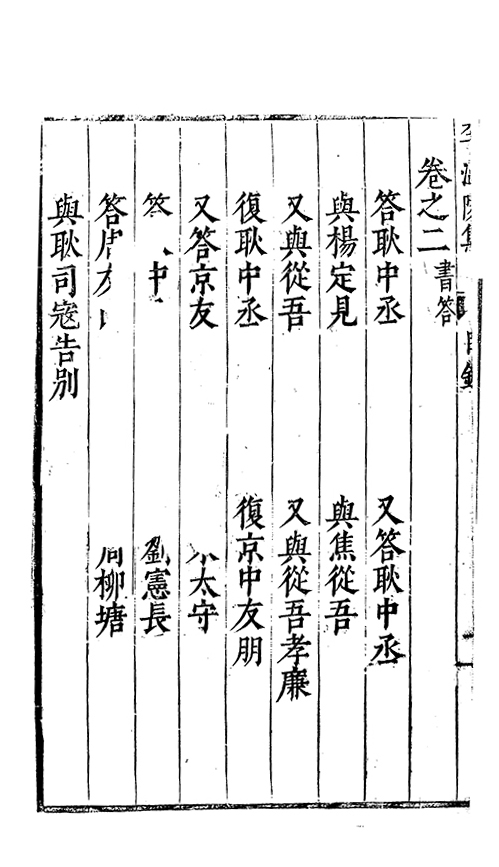 卷之二 書答
答耿中丞 又答耿中丞
與楊定見 與焦從吾
又與從吾 又與從吾孝廉
復耿中丞 復京中友朋
又答京友 太守
答 中 劉憲長
答周友 周柳塘
與耿司寇告別